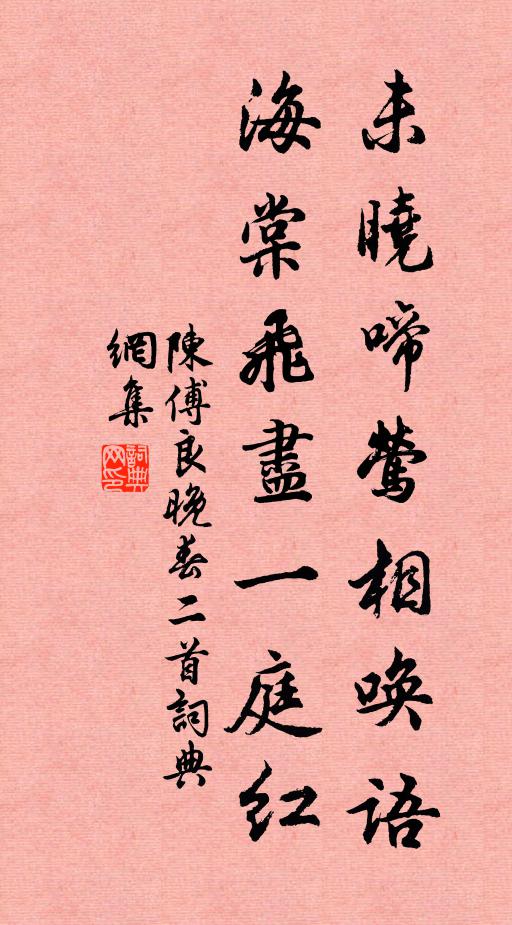 未曉啼鶯相喚語
海棠飛盡一庭紅
陳傅良晚春二首詞典
網集
詞典
网印